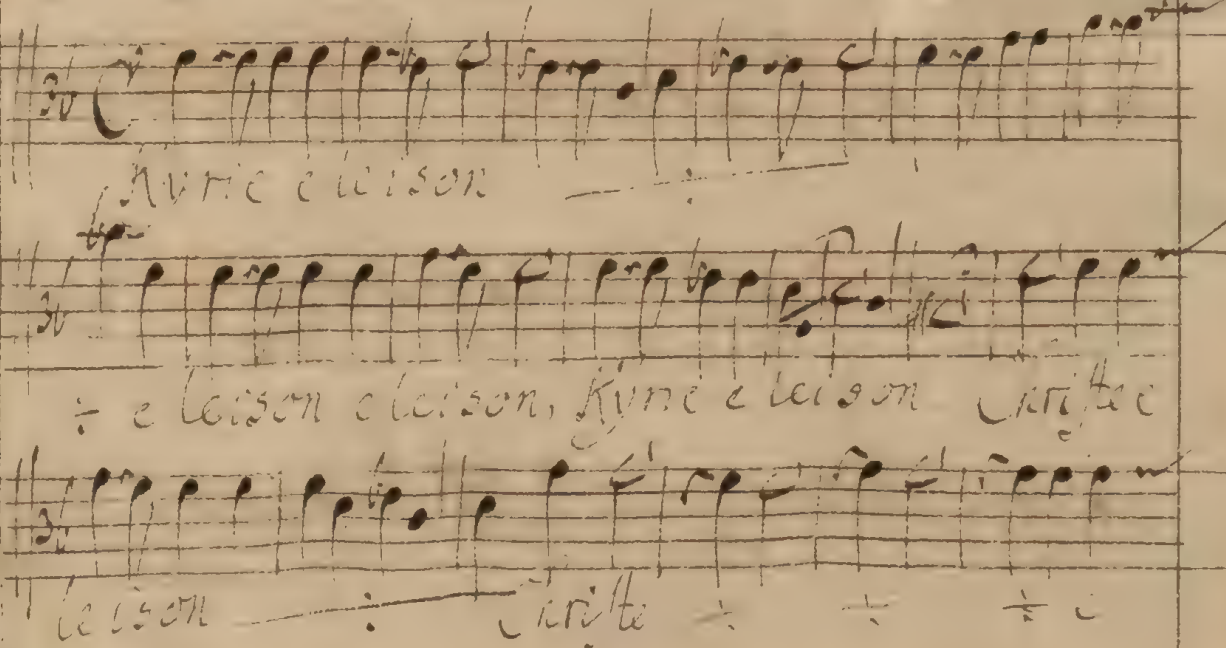 Kyrie eleison ÷
÷ eleison eleison, Kyrie eleison Christe e
leison ÷ Christe ÷ ÷ ÷ e